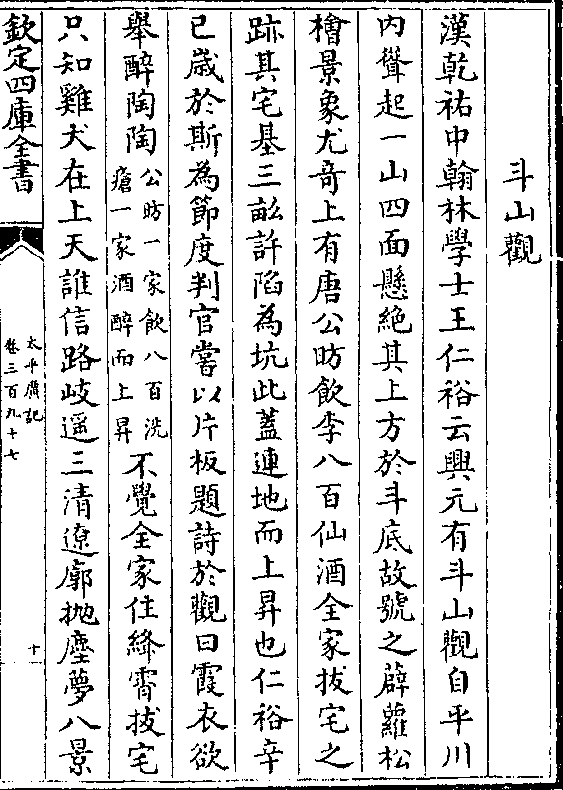 斗山觀
漢乾祐中翰林學士王仁裕云興元有斗山觀自平川
内聳起一山四面懸絶其上方於斗底故號之薜蘿松
檜景象尤竒上有唐公昉飲李八百仙酒全家拔宅之
跡其宅基三畝許陷為坑此蓋連地而上昇也仁裕辛
已嵗於斯為節度判官嘗以片板題詩於觀曰霞衣欲
舉醉陶陶
公昉一家飲八百洗
瘡一家酒醉而上昇
不覺全家住絳霄拔宅
只知雞犬在上天誰信路岐遥三清遼廓抛塵夢八景
欽定四庫全書
太平廣記
卷三百九十七
十